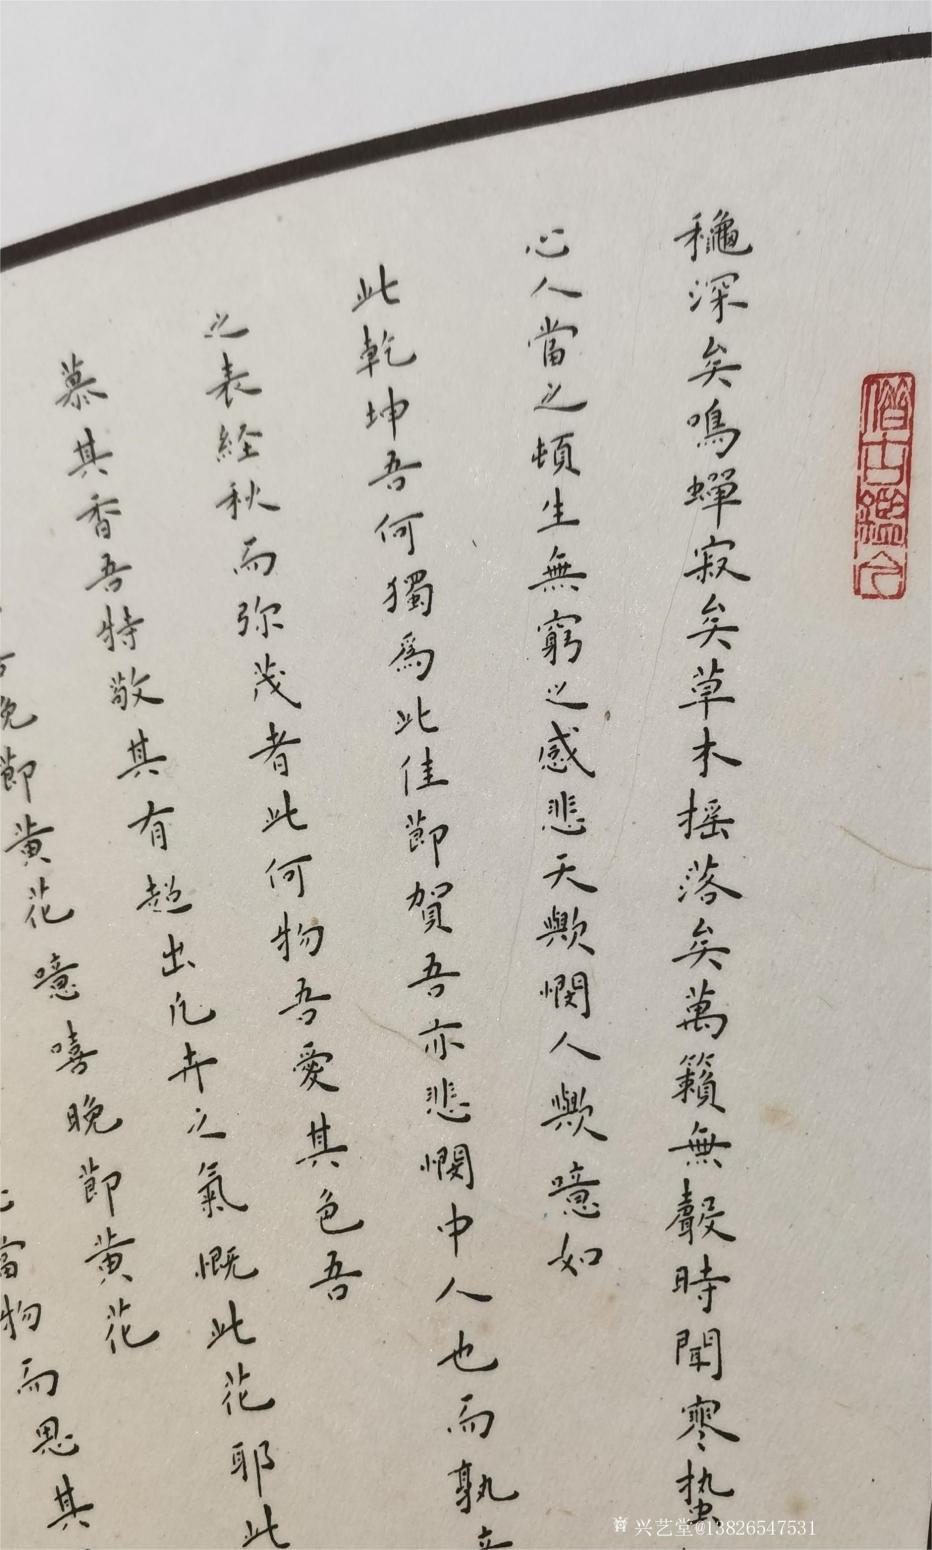 借古鑑今
龝深矣鳴蟬寂矣草木摇落矣萬籟無聲時聞寒蛰
心人當之頓生無窮之感悲天歟憫人歟噫如
此乾坤吾何獨爲此佳節賀吾亦悲憫中人也而孰
之表経秋而弥茂者此何物吾愛其色吾
慕其香吾特敬其有超出凡卉之氣慨此花耶此
晚節黄花噫嘻晚節黄花
當物而思其
兴艺堂@13826547531